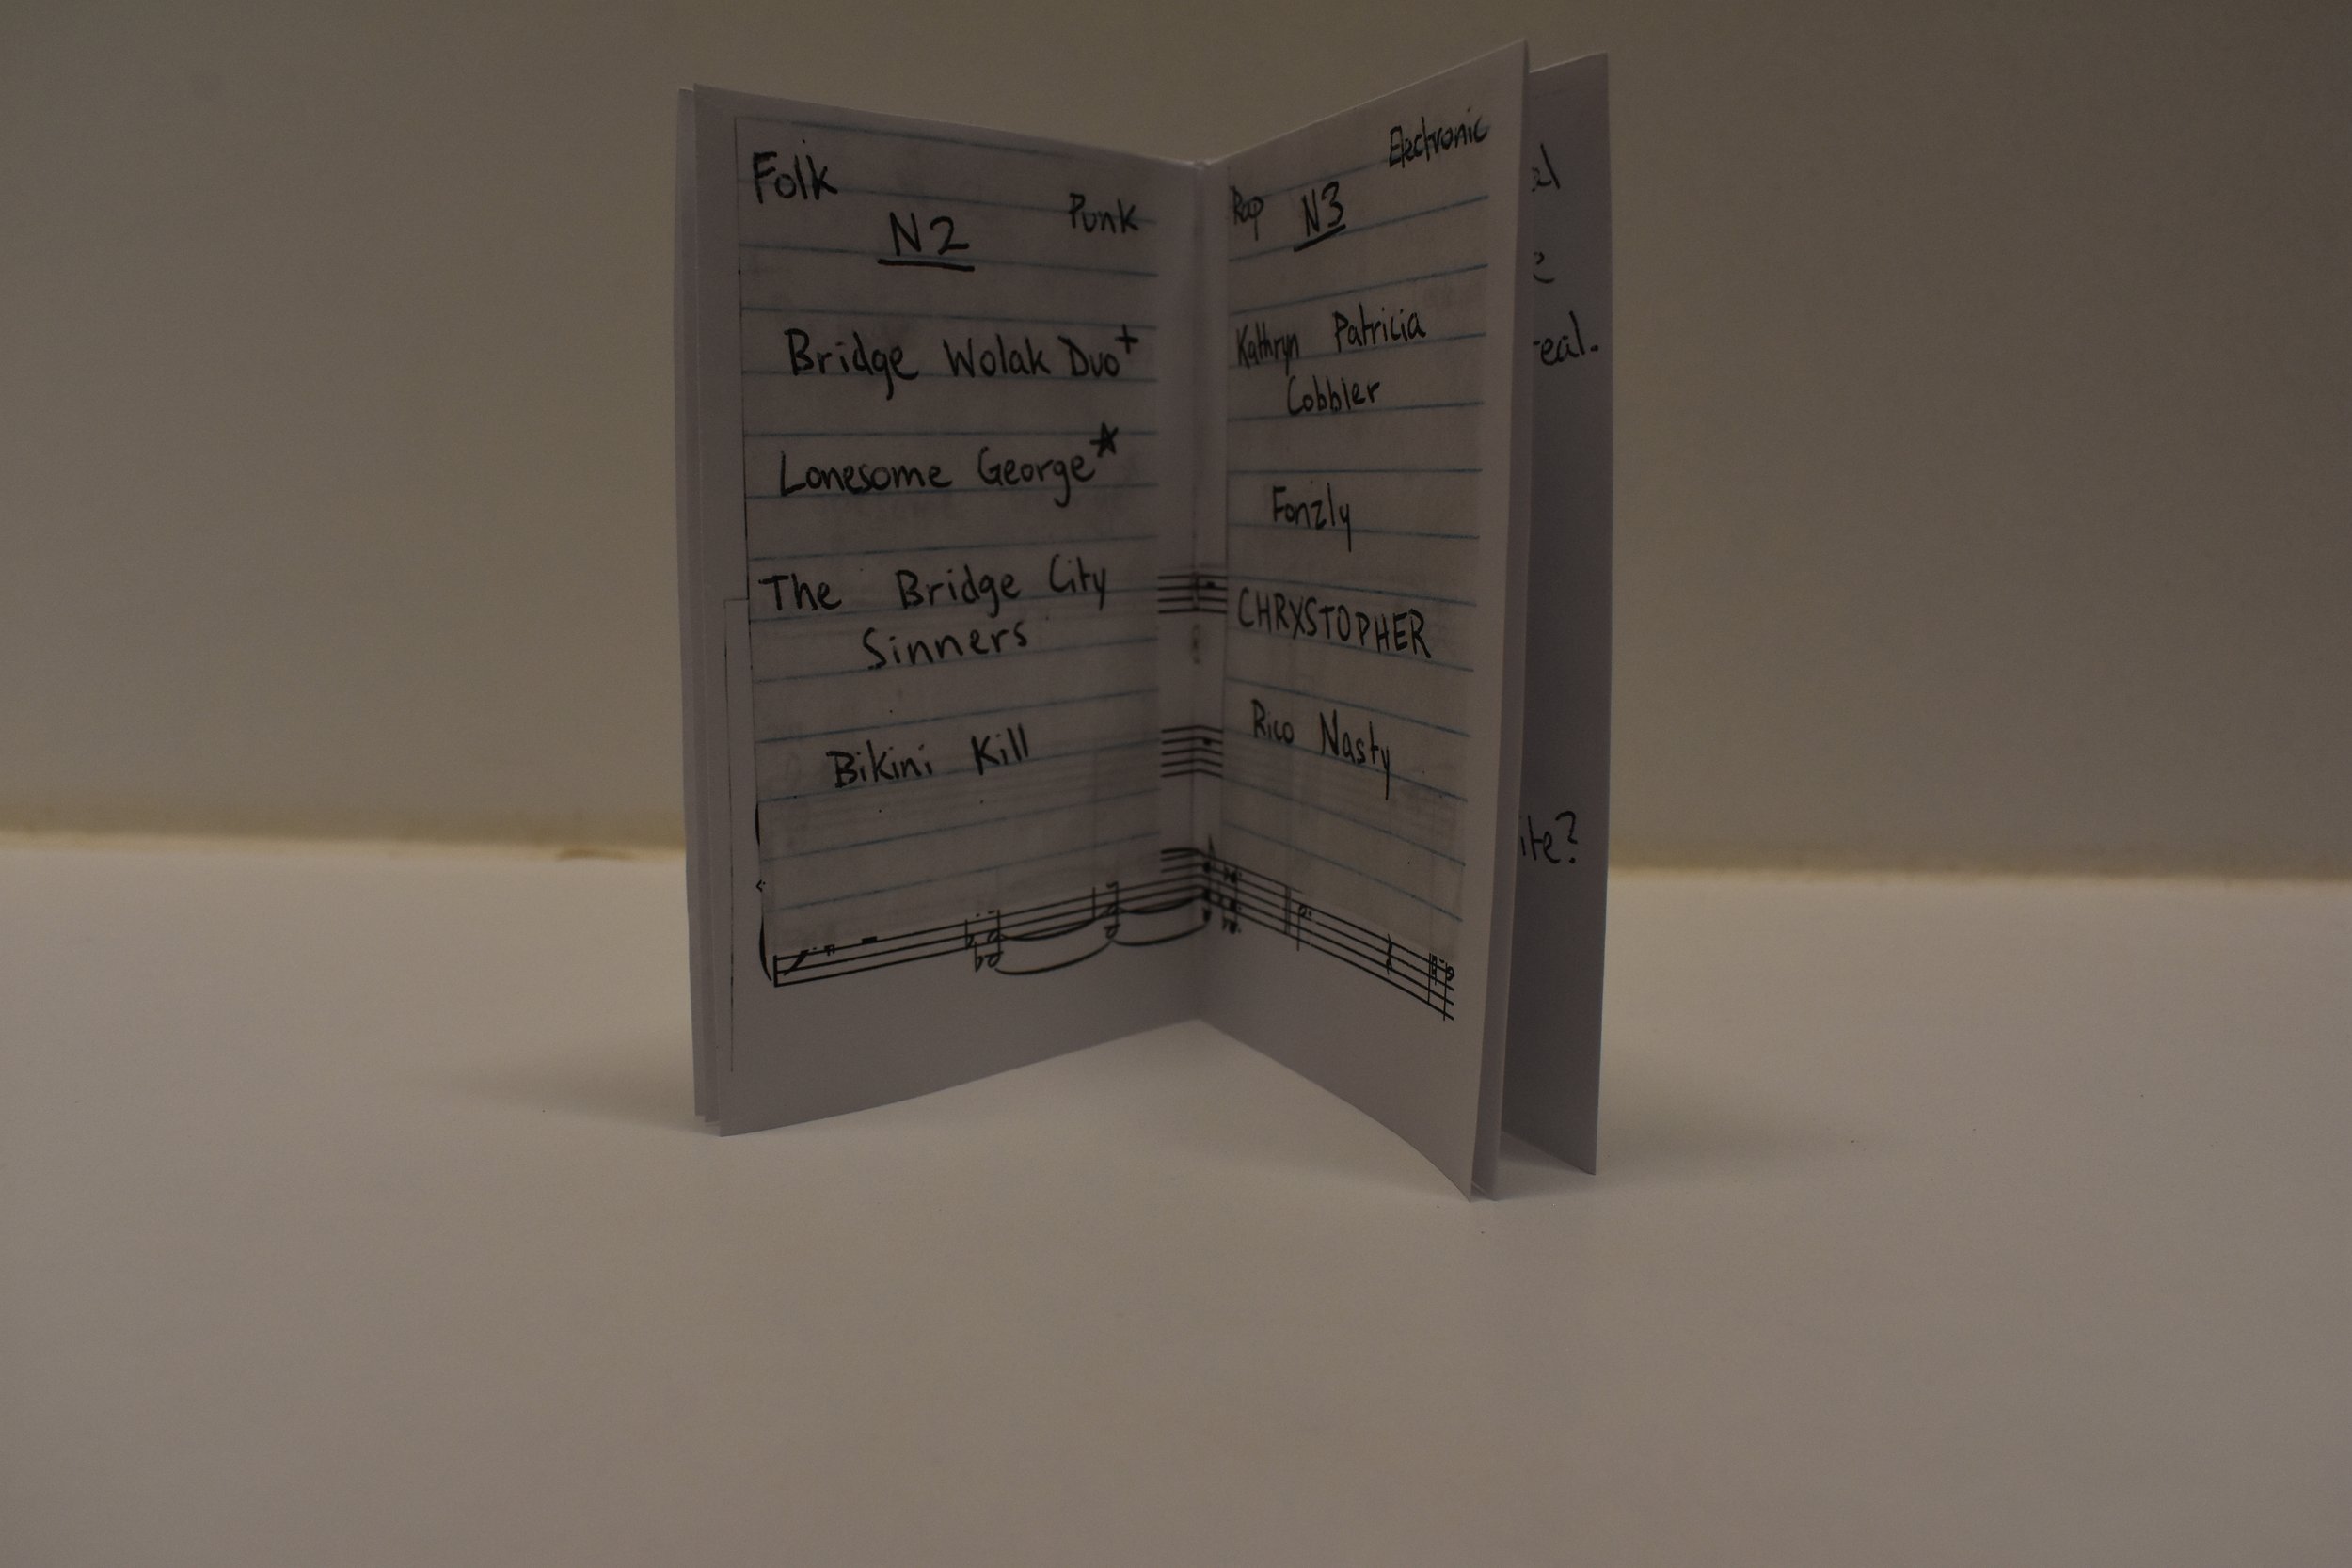 Folk
N2
Punk
Bridge Wolak Duo+
Lonesome George*
The Bridge City
Sinners
Bikini Kill
Electronic
Rap N3
Kathryn Patricia
Cobbler
Fonzly
CHRXSTOPHER
Rico Nasty